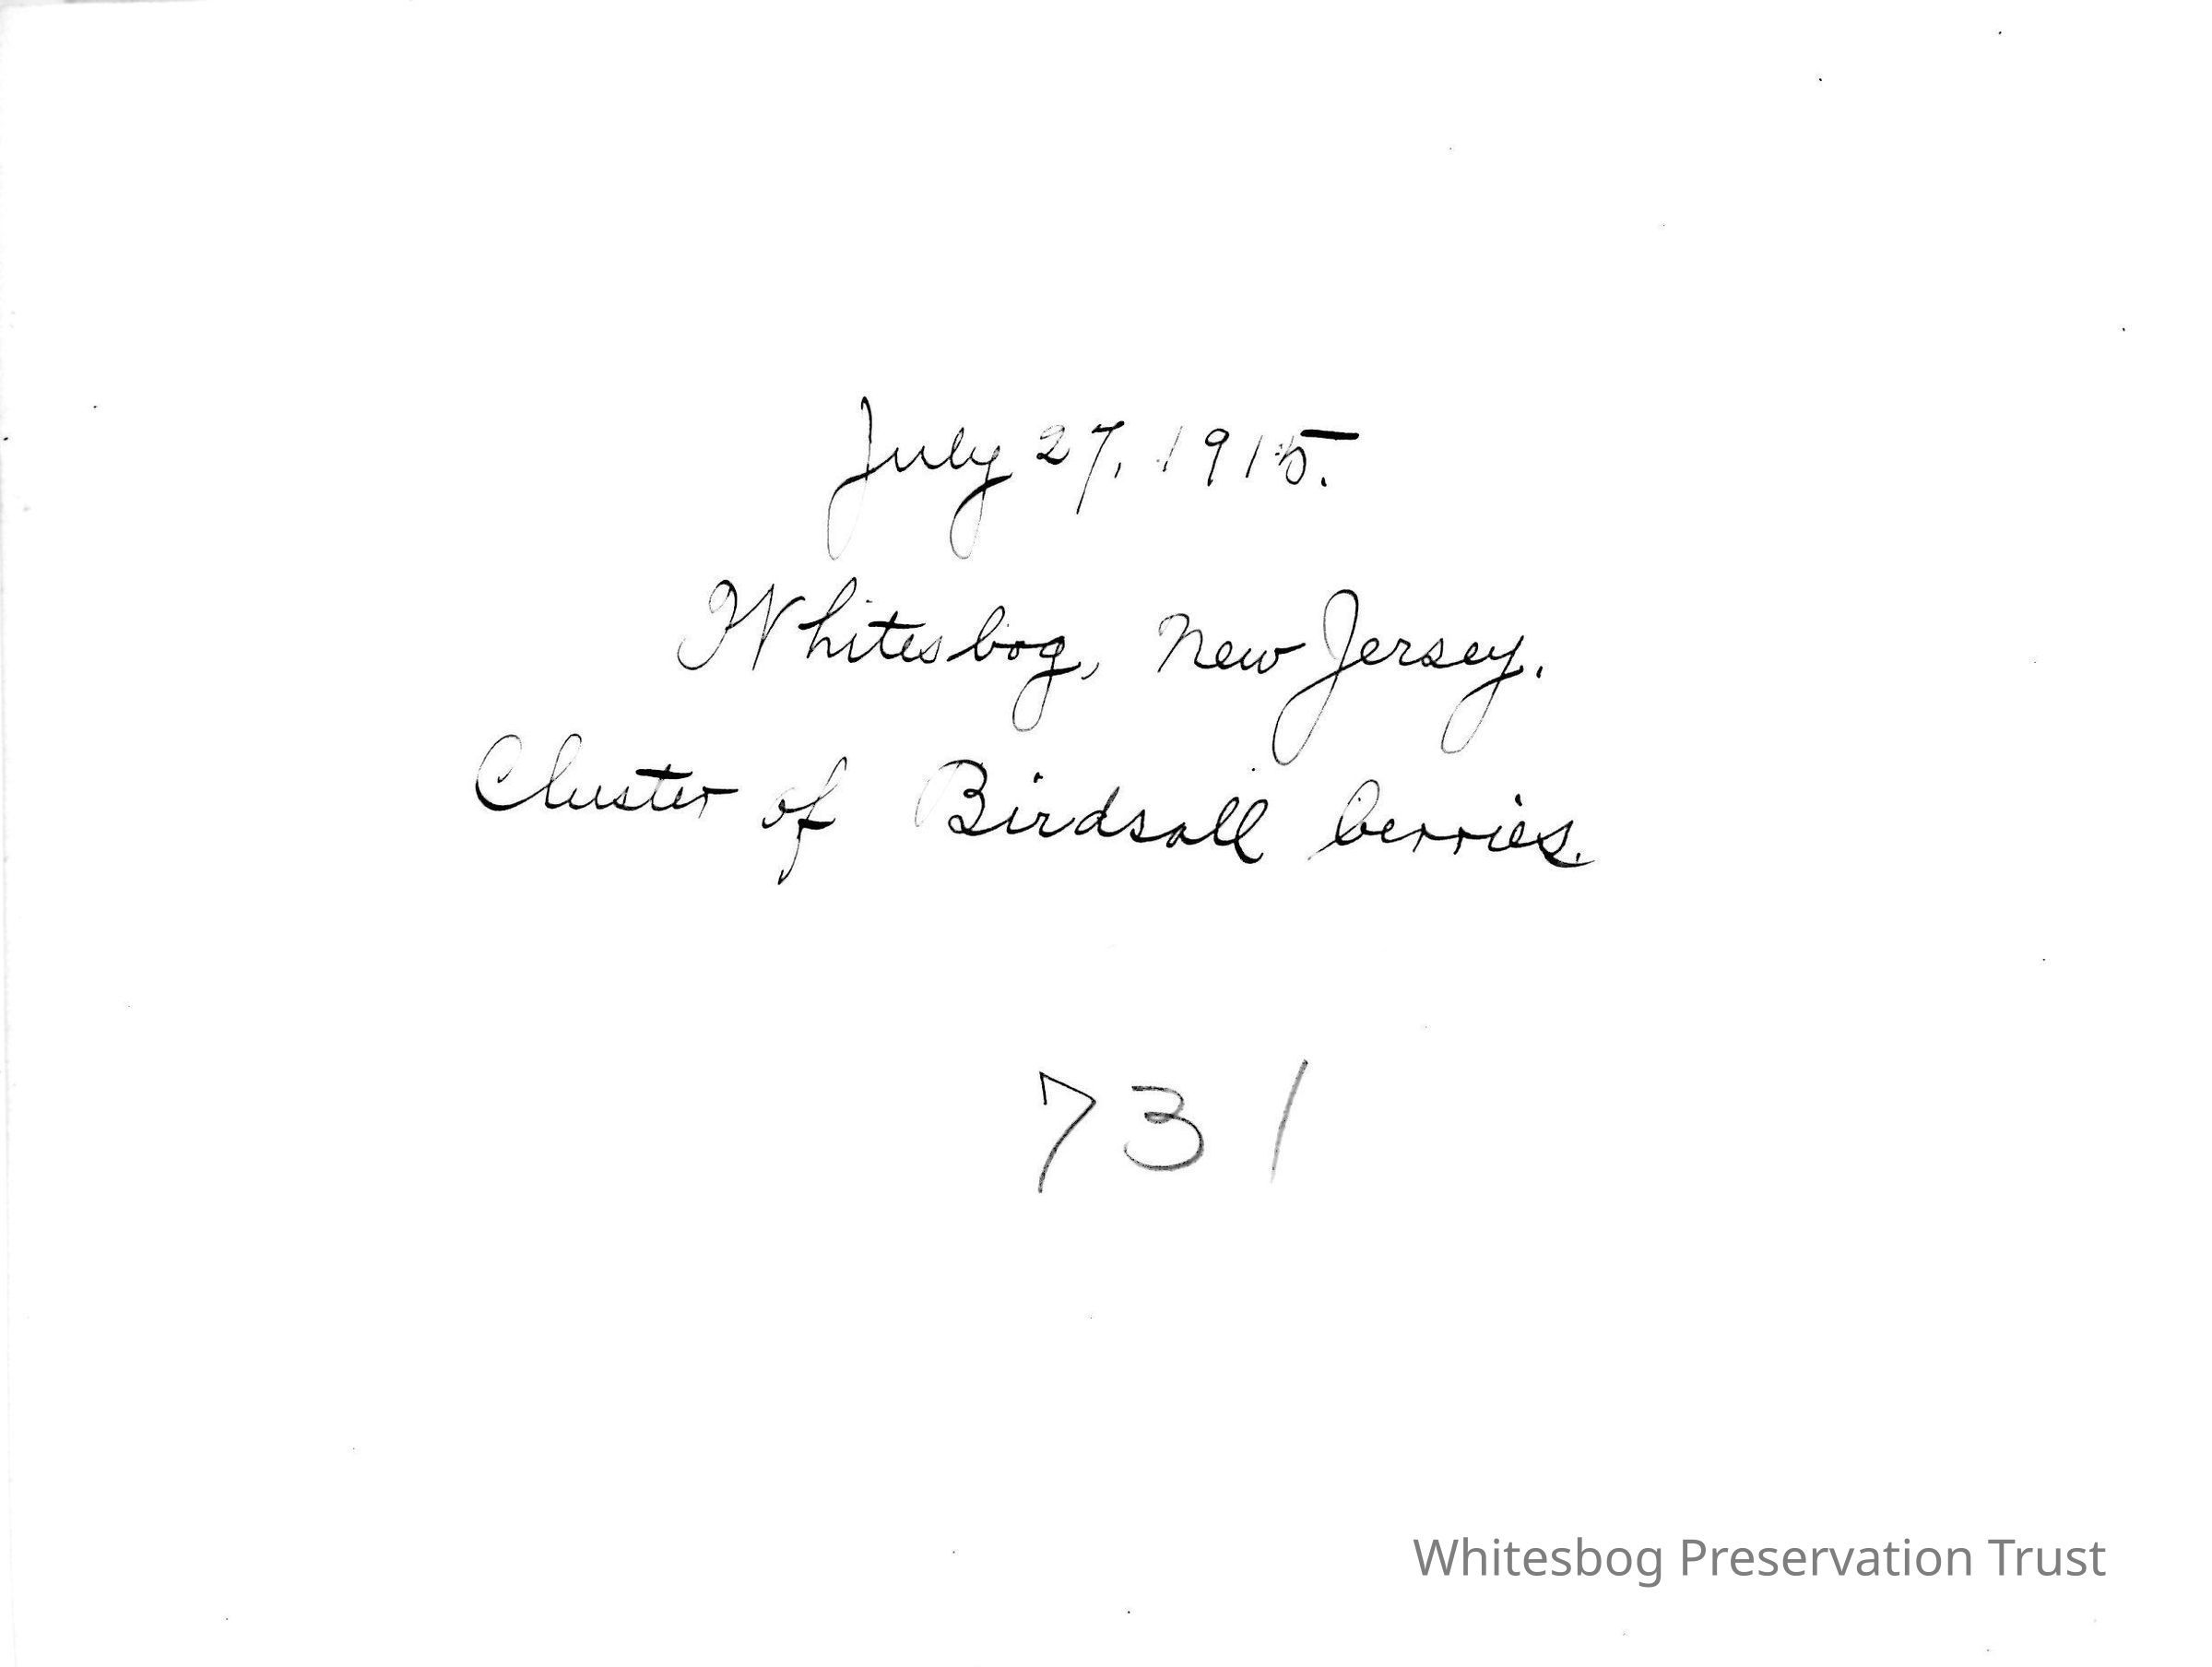 July 27, 1915.
Whitesbog, New Jersey.
Cluster of Birdsall berries.
731
Whitesbog Preservation Trust